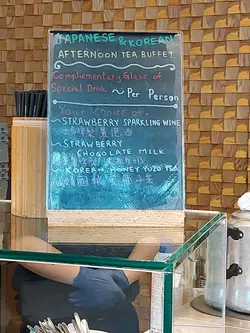 JAPANESE & KOREAN
AFTERNOON TEA BUFFET.
Complementary Glass of
Special Drink ~ Per Person
Your Choice of:
~ STRAWBERRY SPARKLING WINE
~ STRAWBERRY
CHOCOLATE MILK
~ KOREAN HONEY YUZU TEA